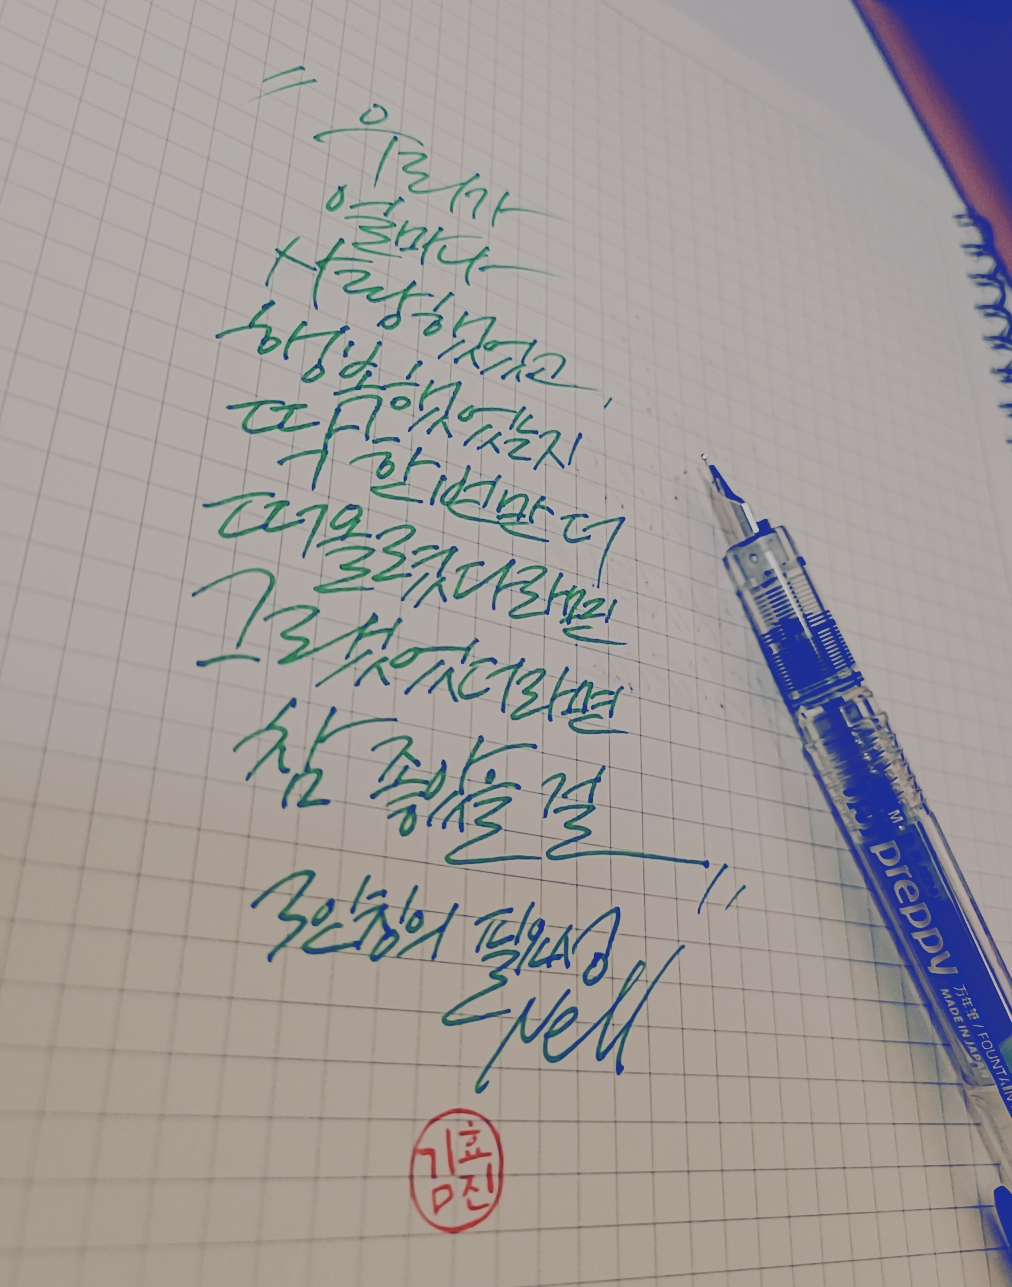 "우리가
얼마나
사랑했었고,
행복했었는지
딱 한번만 더
떠올렸다라면
그랬었더라면
참 좋았을 걸"
3인칭의 필요성
Nell
김효진
preppy
万年筆 / FOUNTAIN
MADE IN JAPAN